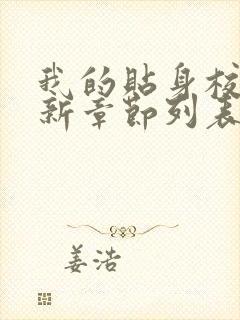 我的贴身校
新章节列表
姜浩